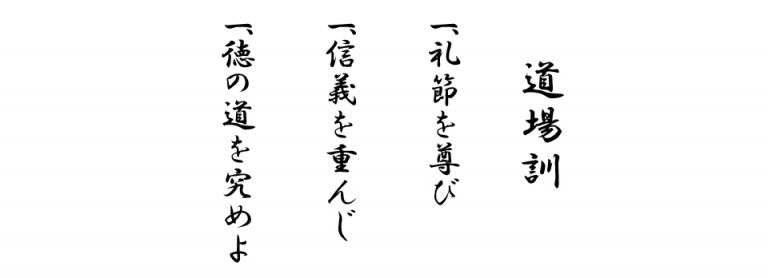 道場訓
一、礼節を尊び
一、信義を重んじ
一、徳の道を究めよ